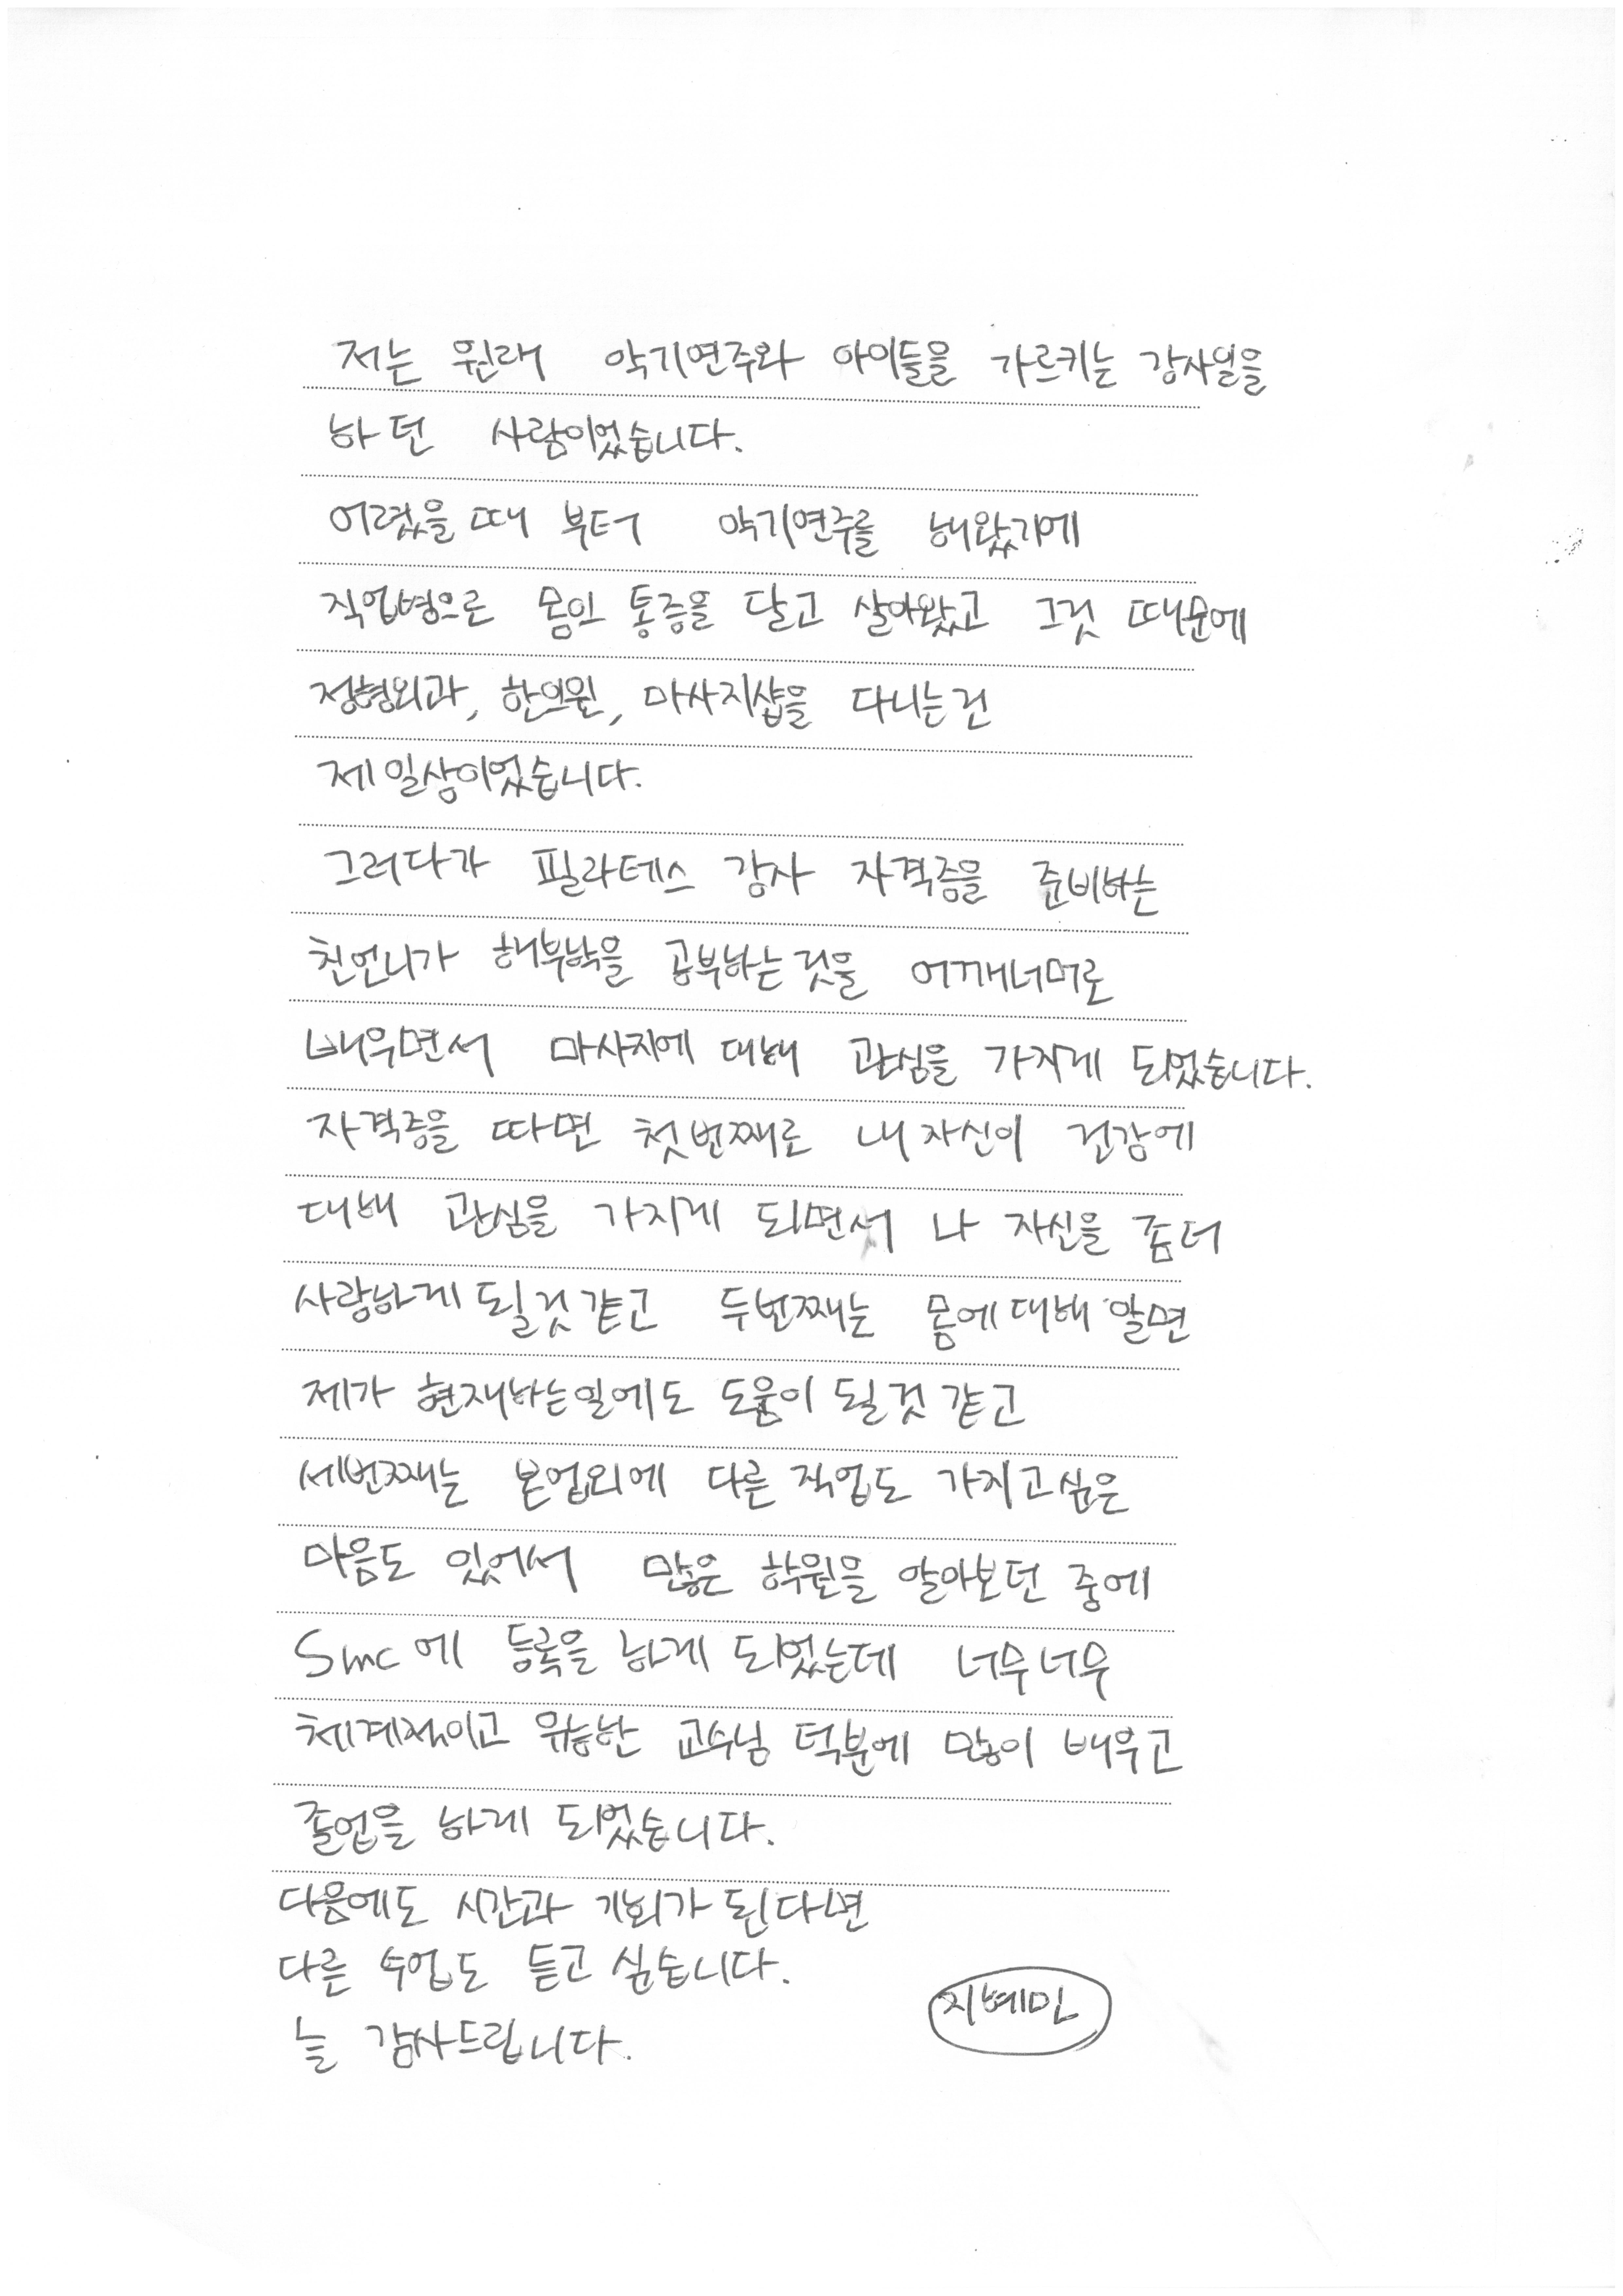 저는 원래 악기연주와 아이들을 가르키는 강사일을
하던 사람이었습니다.
어렸을때 부터 악기연주를 해왔기에
직업병으로 몸의 통증을 달고 살아왔고 그것 때문에
정형외과, 한의원, 마사지샵을 다니는건
제일상이었습니다.
그러다가 필라테스 강사 자격증을 준비하는
친언니가 해부학을 공부하는것을 어깨너머로
배우면서 마사지에 대해 관심을 가지게 되었습니다.
자격증을 따면 첫번째로 내자신이 건강에
대해 관심을 가지게 되면서 나 자신을 좀더
사랑하게 될것같고 두번째는 몸에대해 알면
제가 현재하는일에도 도움이 될것같고
세번째는 본업외에 다른 직업도 가지고싶은
마음도 있어서 많은 학원을 알아보던 중에
Smc에 등록을 하게 되었는데 너무너무
체계적이고 유능한 교수님 덕분에 많이 배우고
졸업을 하게 되었습니다.
다음에도 시간과 기회가 된다면
다른 수업도 듣고 싶습니다.
늘 감사드립니다.
지혜민